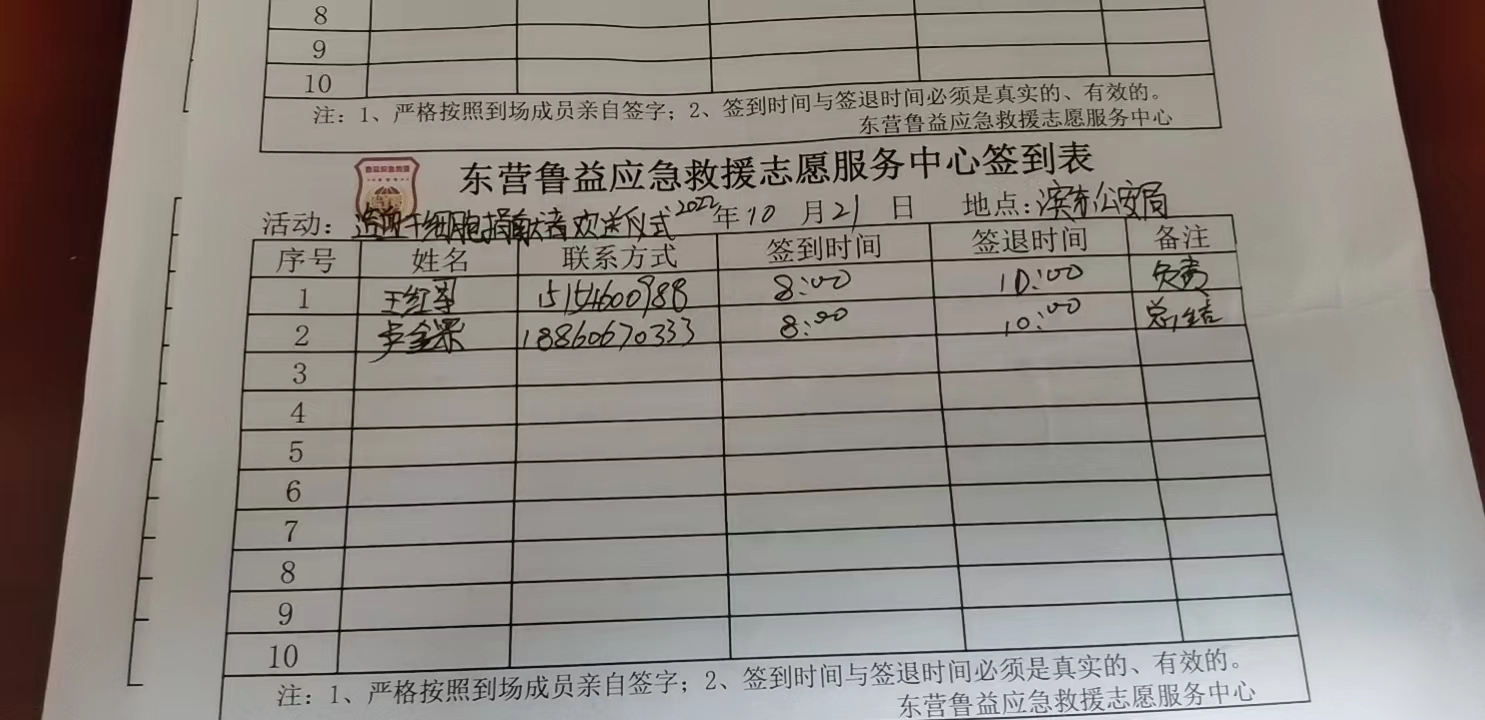 8
9
10
注：1、严格按照到场成员亲自签字；2、签到时间与签退时间必须是真实的、有效的。
东营鲁益应急救援志愿服务中心
鲁益应急救援
东营鲁益应急救援志愿服务中心签到表
活动：造血干细胞捐献者欢送仪式 2022年10月21日 地点：滨东公安局
序号 姓名 联系方式 签到时间 签退时间 备注
1 王红军 15154600988 8:00 10:00 负责
2 8:00 18860670333 10:00 总结
3
4
5
6
7
8
9
10
注：1、严格按照到场成员亲自签字；2、签到时间与签退时间必须是真实的、有效的。
东营鲁益应急救援志愿服务中心